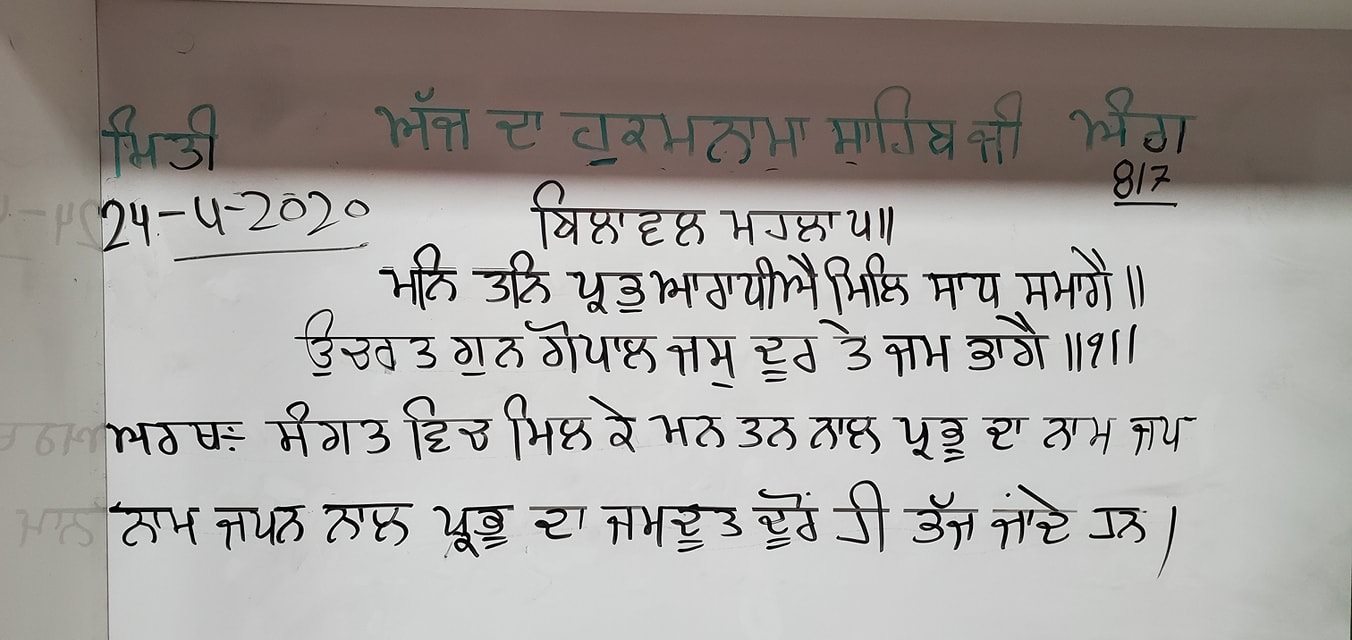 ਮਿਤੀ ਅੱਜ ਦਾ ਹੁਕਮਨਾਮਾ ਸਾਹਿਬ ਜੀ ਅੰਗ
817
24-4-2020 ਬਿਲਾਵਲ ਮਹਲਾ ੫॥
ਮਨਿ ਤਨਿ ਪ੍ਰਭੁ ਆਰਾਧੀਐ ਮਿਲਿ ਸਾਧ ਸਮਾਗੈ॥
ਉਚਰਤ ਗੁਨ ਗੋਪਾਲ ਜਸੁ ਦੂਰ ਤੇ ਜਮ ਭਾਗੈ॥੧॥
ਅਰਥ: ਸੰਗਤ ਵਿਚ ਮਿਲ ਕੇ ਮਨ ਤਨ ਨਾਲ ਪ੍ਰਭੂ ਦਾ ਨਾਮ ਜਪ
ਨਾਮ ਜਪਨ ਨਾਲ ਪ੍ਰਭੂ ਦਾ ਜਮਦੂਤ ਦੂਰੋਂ ਹੀ ਭੱਜ ਜਾਂਦੇ ਹਨ।